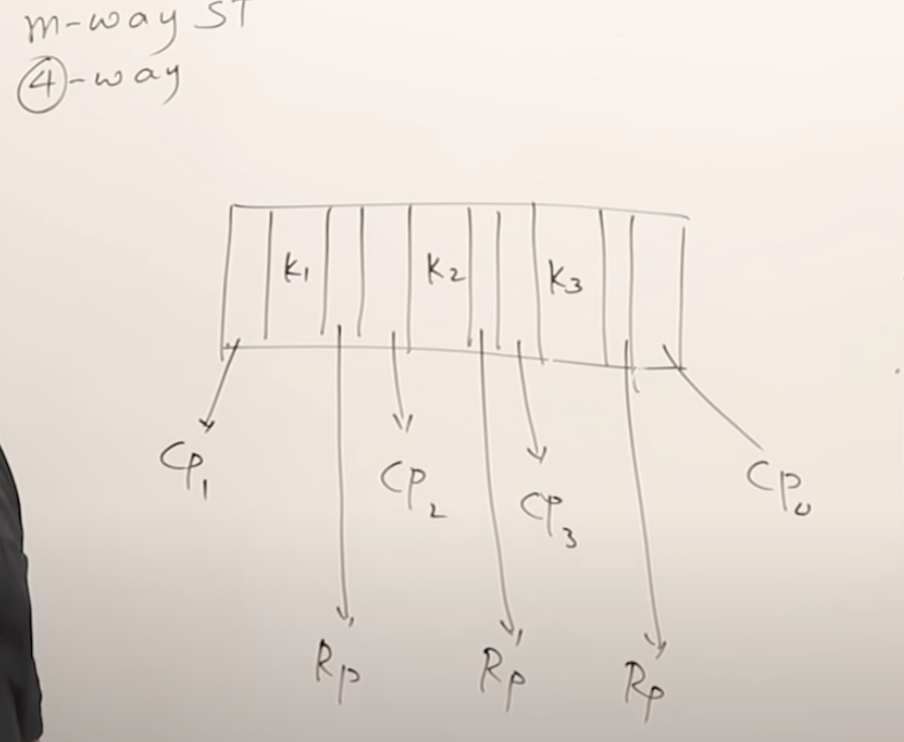 m-way ST
④-way
K₁ K₂ K₃
CP₁ CP₂ CP₃ CP₄
Rp Rp Rp